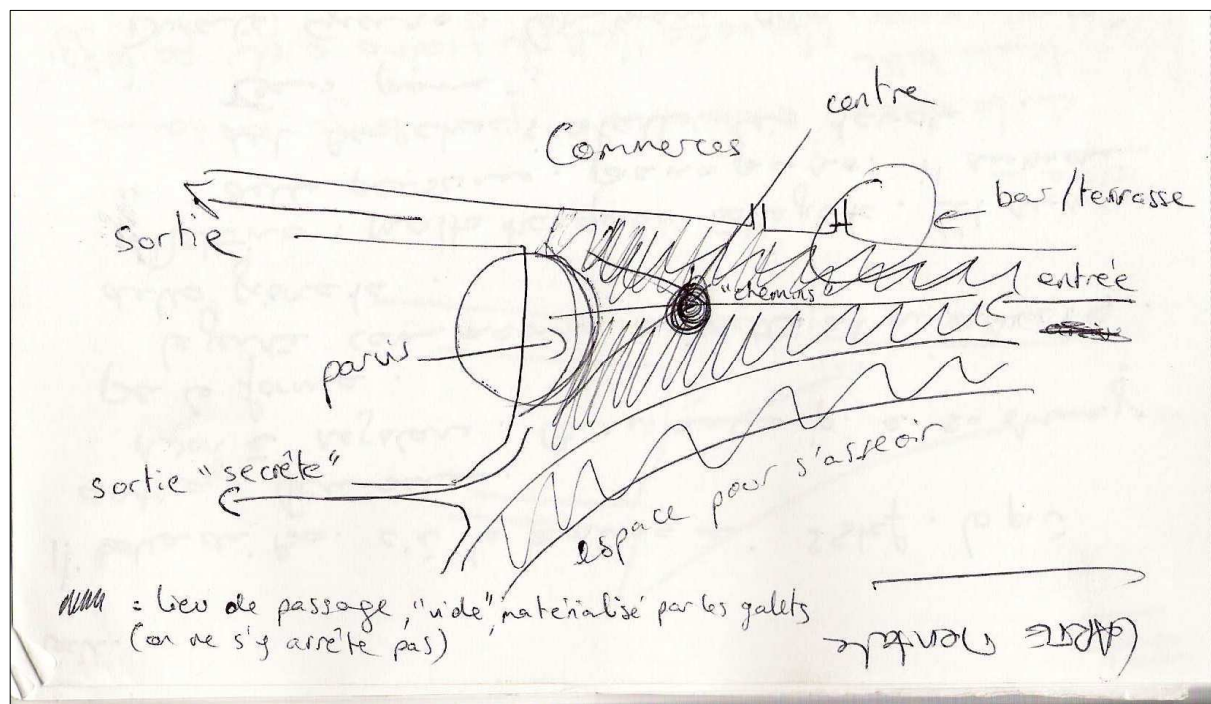 centre
Commerces
bar/terrasse
Sortie
"chemins"
entrée
parvis
sortie "secrête"
espace pour s'asseoir
= lieu de passage, "vide", matérialisé par les galets
(on ne s'y arrête pas)
CARTE mentale